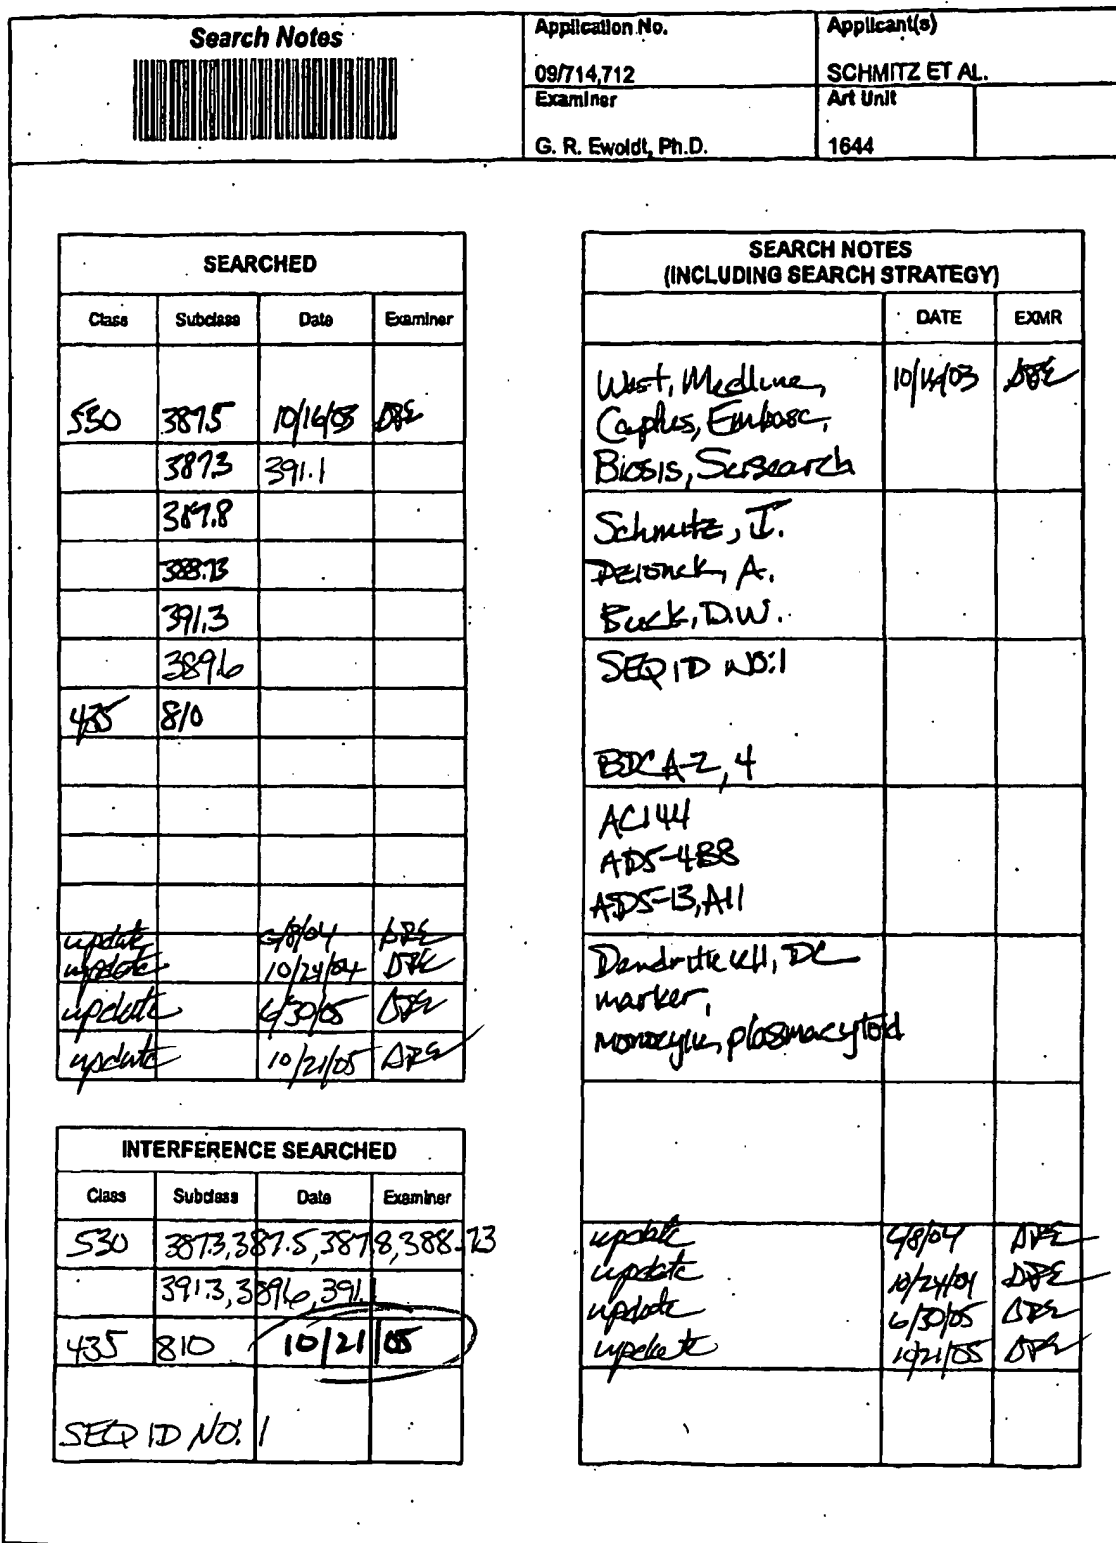 Search Notes
Application No.
09/714,712
Applicant(s)
SCHMITZ ET AL.
Examiner
G. R. Ewoldt, Ph.D.
Art Unit
1644
SEARCHED
Class Subclass Date Examiner
530 387.5 10/16/03
387.3 391.1
387.8
388.73
391.3
389.6
435 810
update /8/04
update 10/24/04
update 6/30/05
update 10/21/05
INTERFERENCE SEARCHED
Class Subclass Date Examiner
530 387.3, 387.5, 387.8, 388.73
391.3, 389.6, 391.1
435 810 10/21/05
SEQ ID NO: 1
SEARCH NOTES
(INCLUDING SEARCH STRATEGY)
DATE EXMR
West, Medline, 10/16/03
Caplus, Embase,
Biosis, Scisearch
Schmitz, J.
Dzionek, A.
Buck, D.W.
SEQ ID NO:1
BDCA-2, 4
AC144
AD5-4B8
AD5-13, A11
Dendritic cell, DC
marker,
plasmacytoid
update /8/04
update 10/24/04
update 6/30/05
update 10/21/05